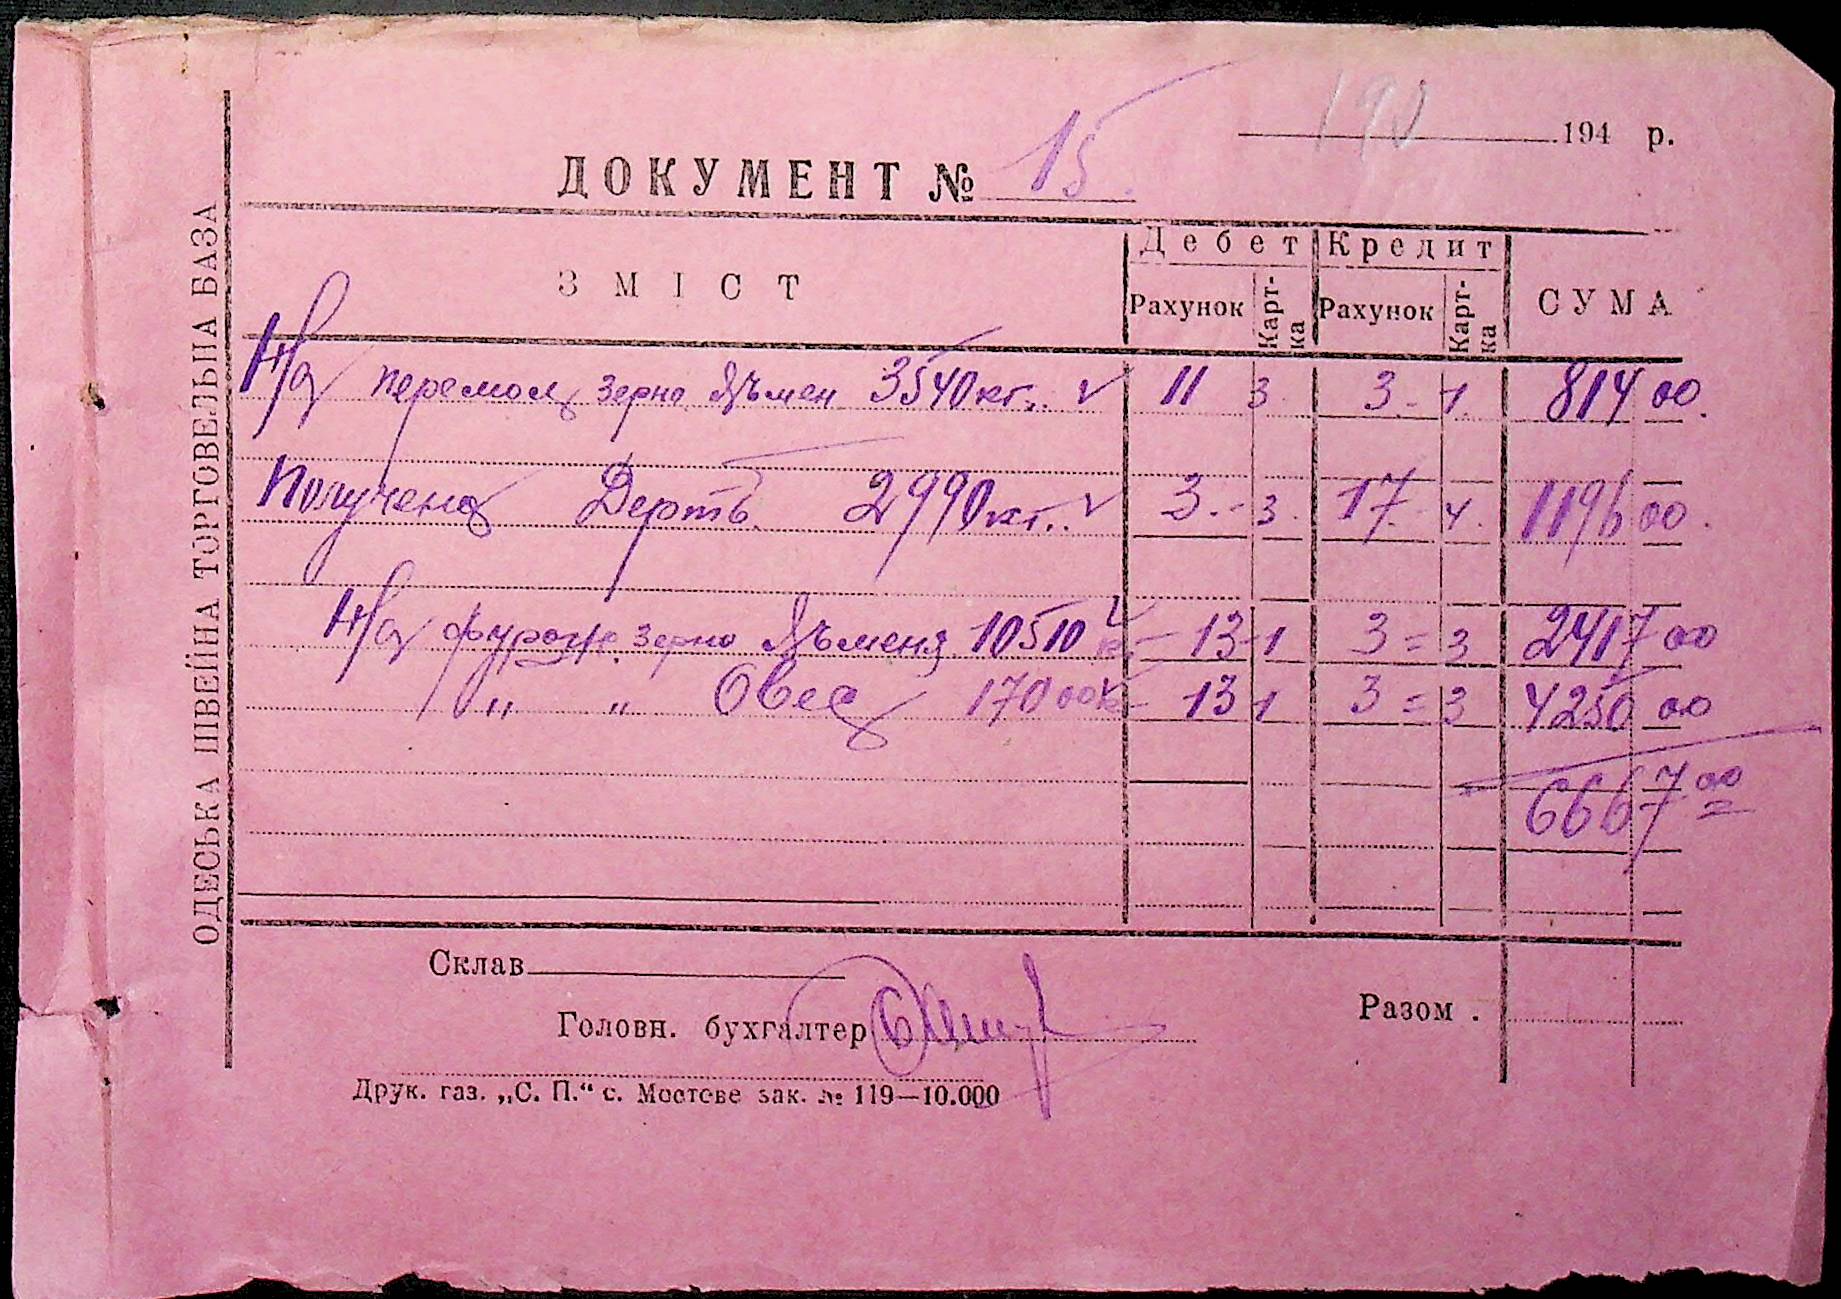 190
194 р.
ДОКУМЕНТ № 15
ОДЕСЬКА ШВЕЙНА ТОРГОВЕЛЬНА БАЗА
ЗМІСТ Дебет Кредит СУМА
Рахунок Карт-ка Рахунок Карт-ка
Н/а перемол зерна Ячьмен 3540 кг. 11 3 3 1 814 00
Получена Дерть 2990 кг. 3 3 17 4 1196 00
Н/а фураж зерна Ячьменя 10510 кг 13 1 3 = 3 2417 00
„ „ Овес 170 00 к 13 1 3 = 3 4250 00
6667 00
Склав
Головн. бухгалтер
Разом .
Друк. газ. „С. П.“ с. Мостове зак. № 119—10.000